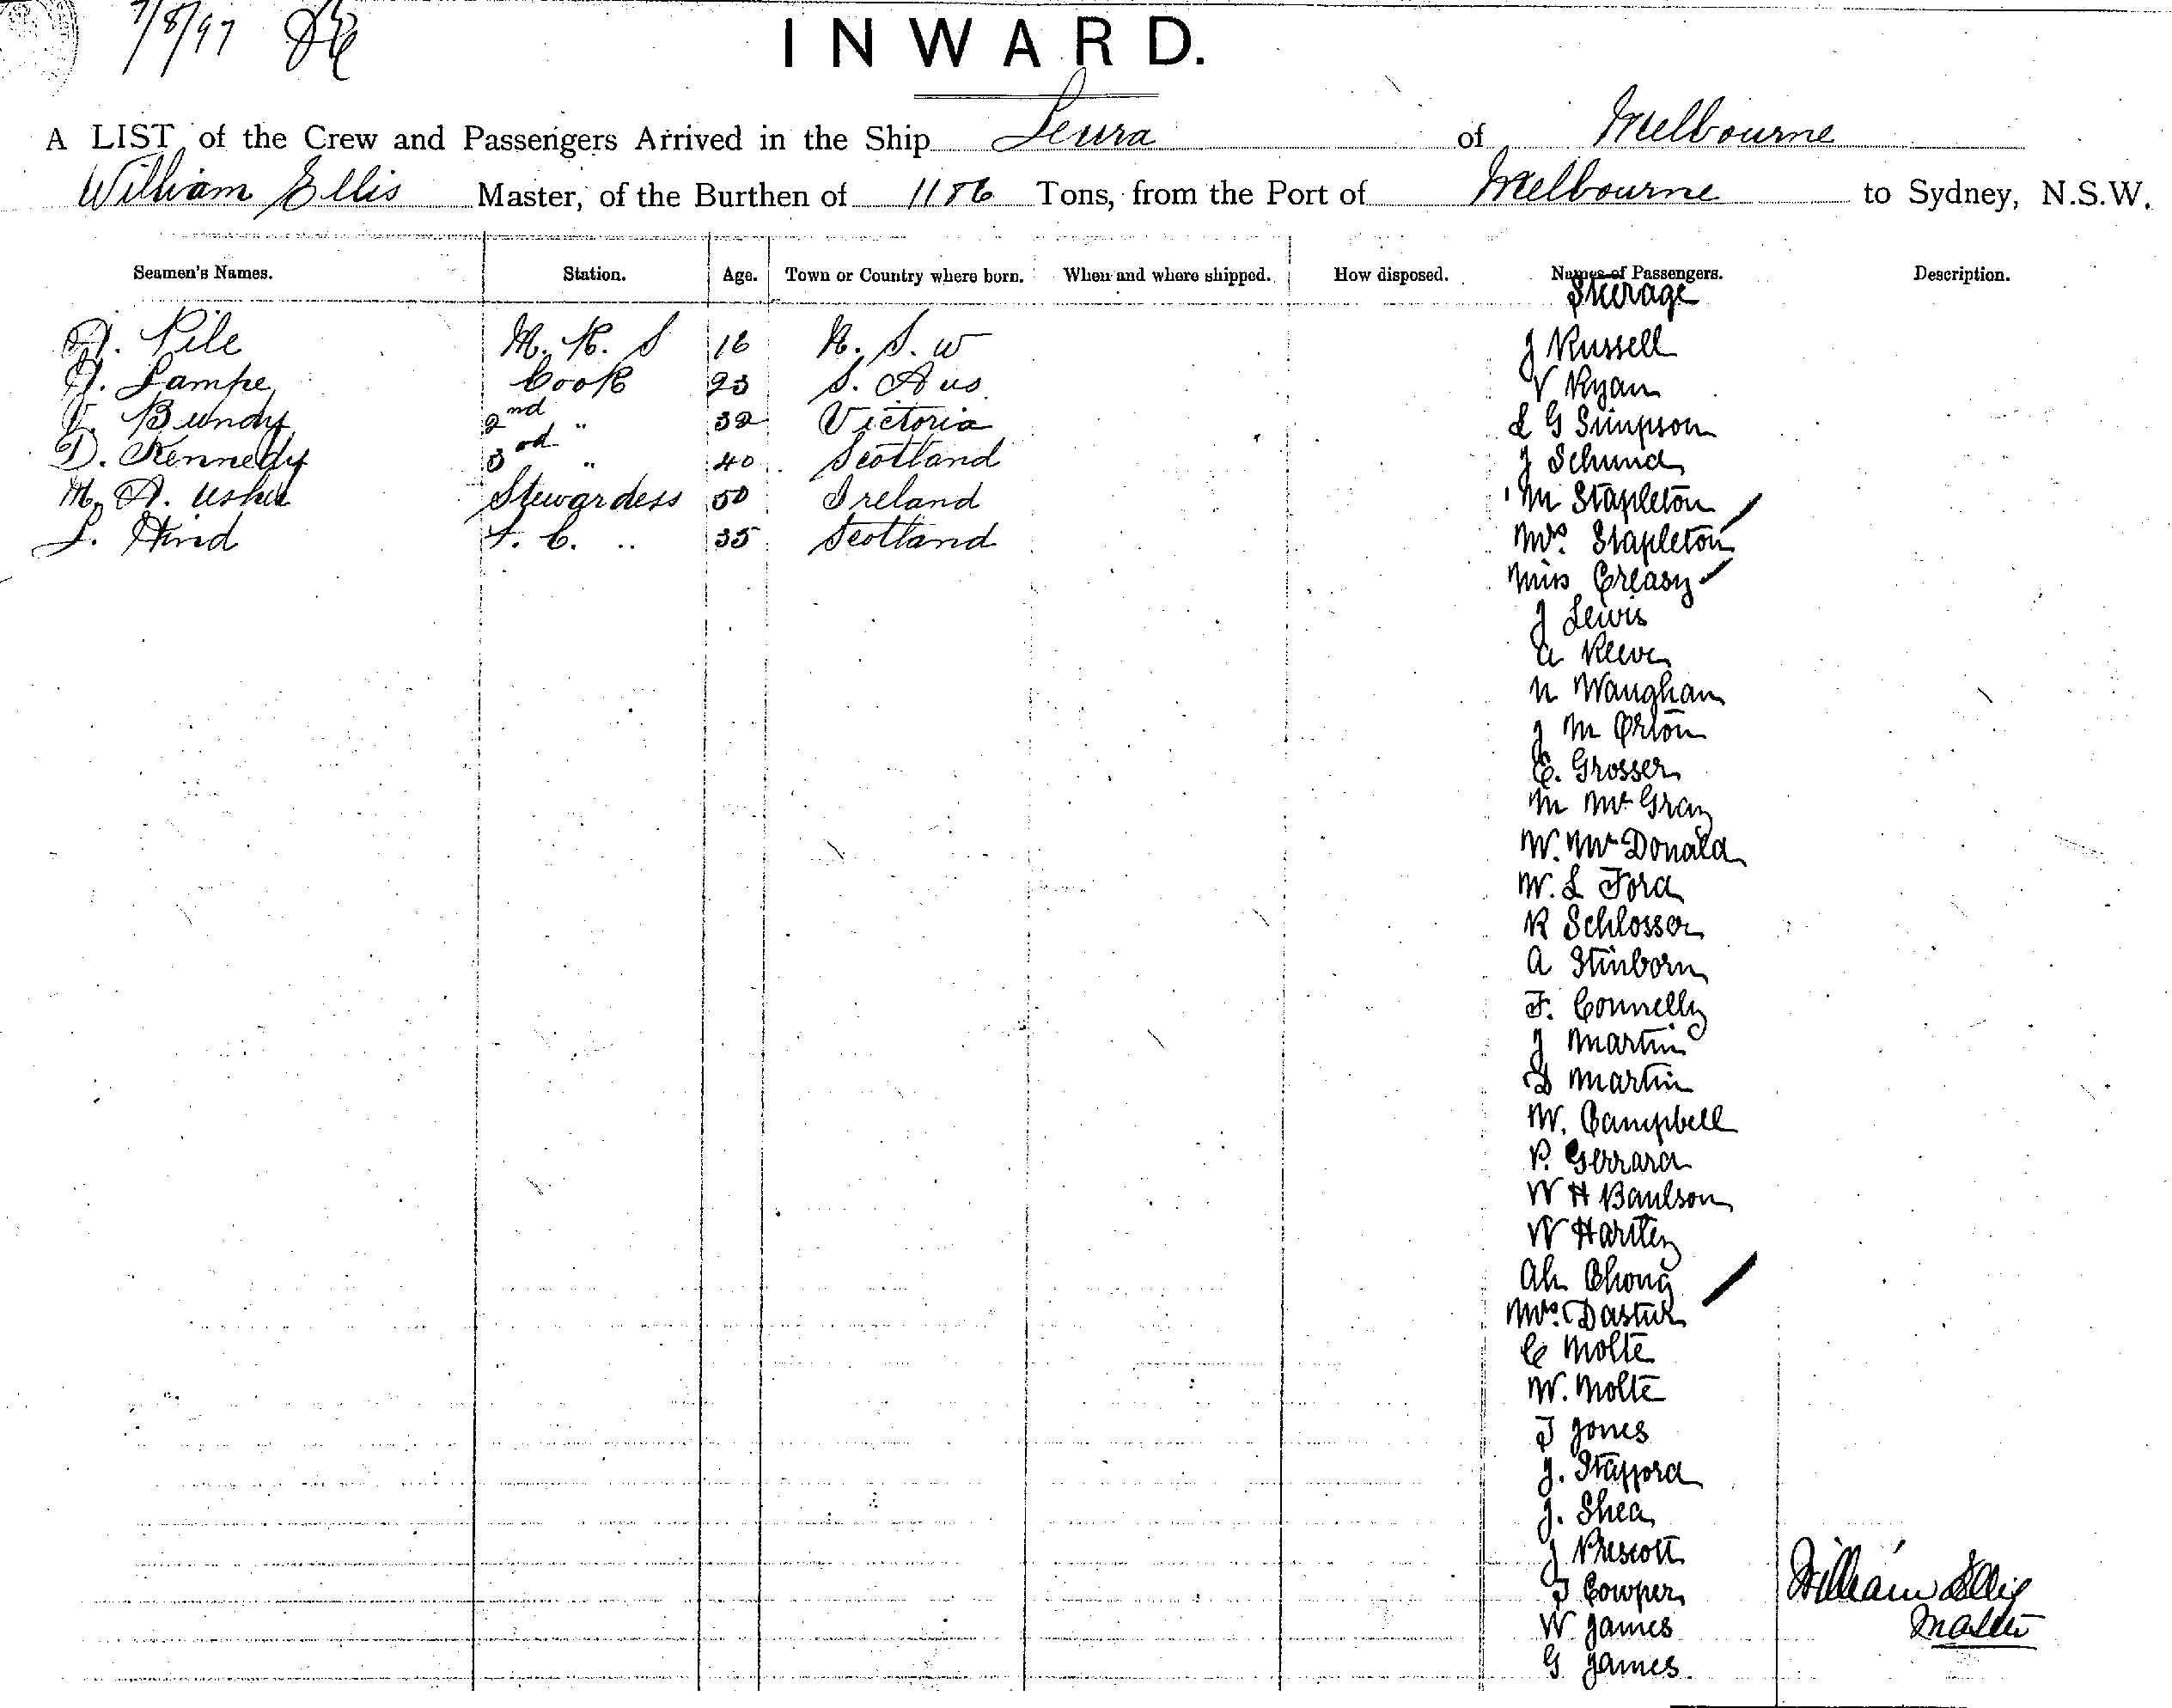 7/8/97
INWARD.
A LIST of the Crew and Passengers Arrived in the Ship Leura of Melbourne
William Ellis Master, of the Burthen of 1186 Tons, from the Port of Melbourne to Sydney, N.S.W.
Seamen's Names. Station. Age. Town or Country where born. When and where shipped. How disposed. Names of Passengers. Description.
Steerage
A. Pile M. R. S 16 N. S. W J Russell
J. Lampe Cook 23 S. Aus V Ryan
V. Bundy 2nd " 32 Victoria L G Simpson
D. Kennedy 3rd " 40 Scotland J Schund
M. A. Usher Stewardess 50 Ireland M Stapleton
L. Hind F. C. " 35 Scotland Mrs. Stapleton
Miss Creasy
J Lewis
A Reeve
N Waughan
J M Orton
C. Grosser
M McGray
W. McDonald
W. L Ford
R Schlosser
A Stinborn
F. Connelly
J Martin
D Martin
W. Campbell
P. Gerrard
W H Baulson
W Hartley
Ah Chong
Mrs. Dastur
C Molte
W. Molte
T Jones
J. Stafford
J. Shea
J Prescott
T Cowper
W James
G James.
William Ellis
Master